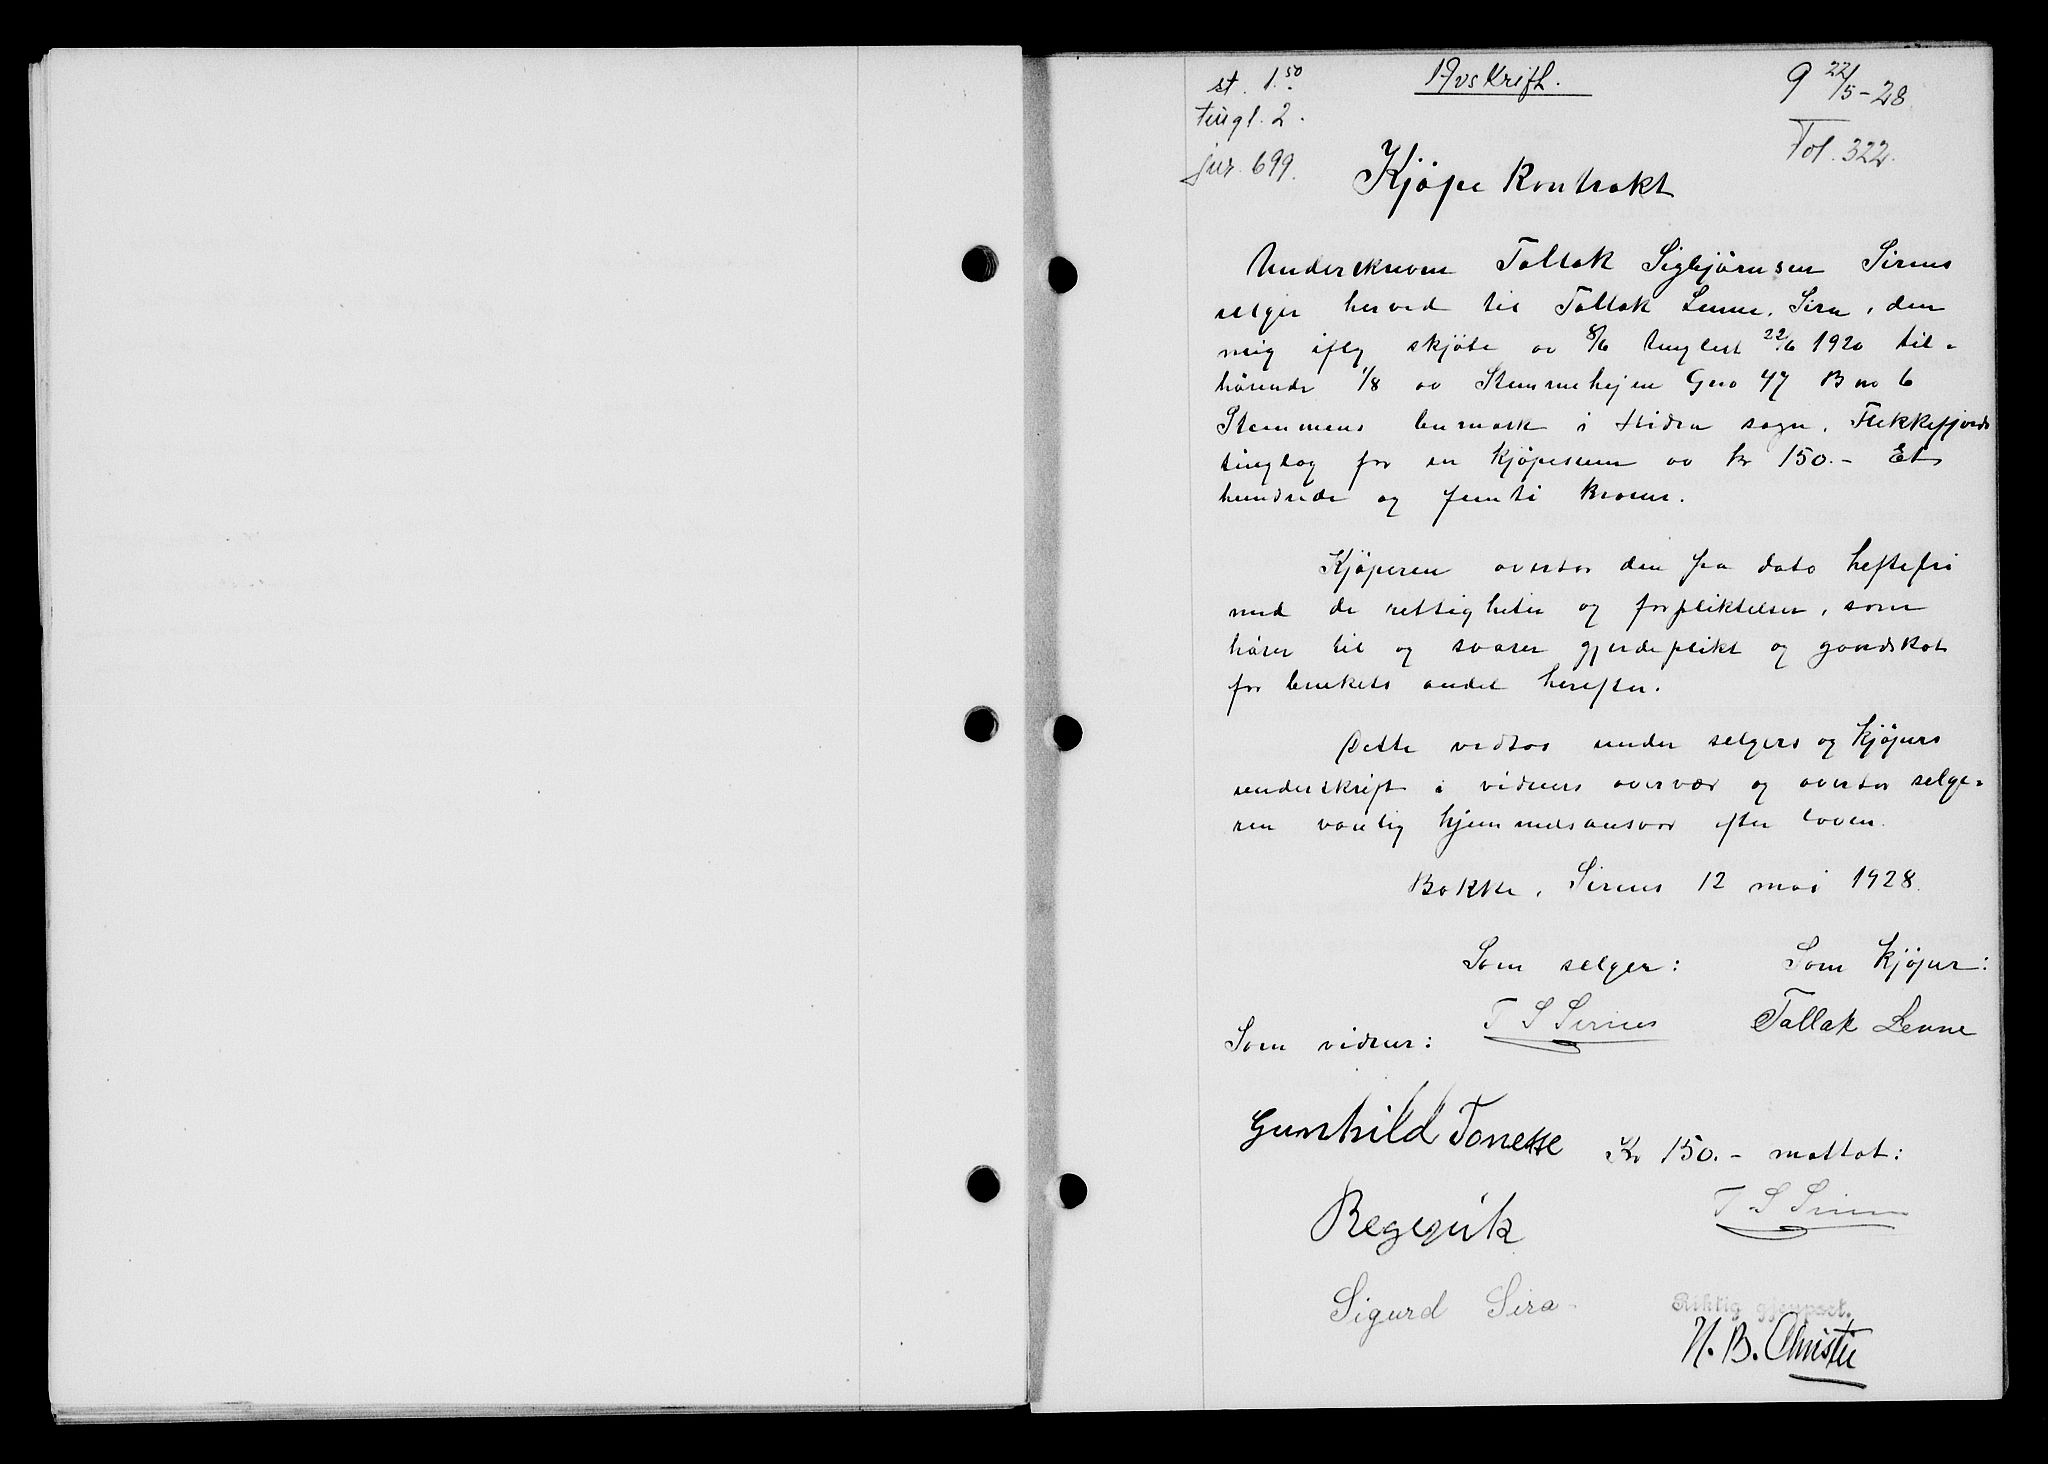 st. 1.50
tingl. 2.
jnr. 699.
Avskrift.
9 22/5-28
Fol. 322.
Kjøpe Kontrakt
Underskreven Tallak Sigbjørnsen Sirnes
selger herved til Tallak Lenne, Sira, den
mig iflg skjøte av 8/6 tinglest 22/6 1920 til-
hørende 1/8 av Stemmehejen Gno 47 B no 6
Stemmens bumark i Hidra sogn, Flekkefjords
tinglag for en kjøpesum av kr 150.- Et
hundrede og femti kroner.
Kjøperen overtar den fra dato heftefri
med de rettigheter og forpliktelser, som
hører til og svarer gjerdeplikt og gaardskat
for brukets andel herefter.
Dette vedtas under selgers og kjøpers
underskrift i vidners overvær og overtar selge-
ren vanlig hjemmelsansvar efter loven.
Bakke, Sirnes 12 mai 1928.
Som selger:
Som kjøper:
T S Sirnes
Tallak Lenne
Som vidner:
Gunhild Tonesse
Kr 150.- mottat:
Regevik
T S Sirnes
Sigurd Sira
Riktig gjenpart.
N. B. Christie